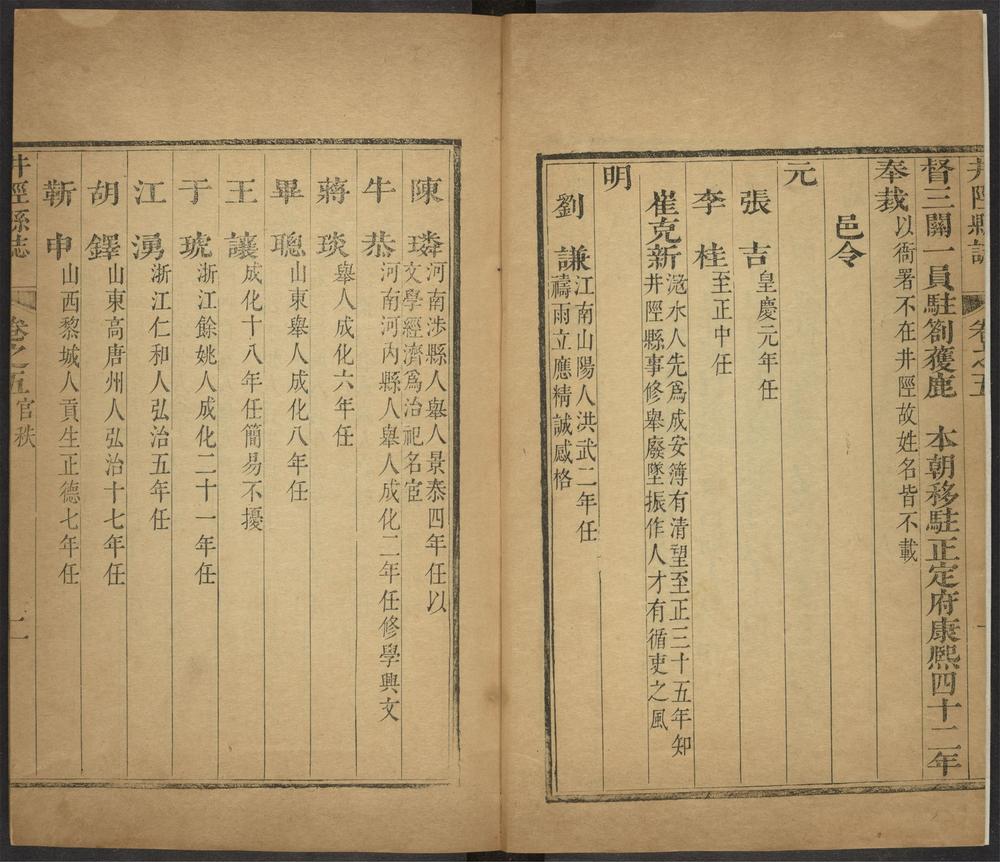 井陘縣誌 卷之五
督三關一員駐劄獲鹿 本朝移駐正定府康熙四十二年
奉裁以衙署不在井陘故姓名皆不載
邑令
元
張吉皇慶元年任
李桂至正中任
崔克新滏水人先爲成安簿有清望至正三十五年知
井陘縣事修舉廢墜振作人才有循吏之風
明
劉謙江南山陽人洪武二年任
禱雨立應精誠感格
陳璘河南涉縣人舉人景泰四年任以
文學經濟爲治祀名宦
牛恭河南河內縣人舉人成化二年任修學興文
蔣琰舉人成化六年任
畢聰山東舉人成化八年任
王讓成化十八年任簡易不擾
于琥浙江餘姚人成化二十一年任
江湧浙江仁和人弘治五年任
胡鐸山東高唐州人弘治十七年任
靳申山西黎城人貢生正德七年任
井陘縣誌 卷之五官秩 二